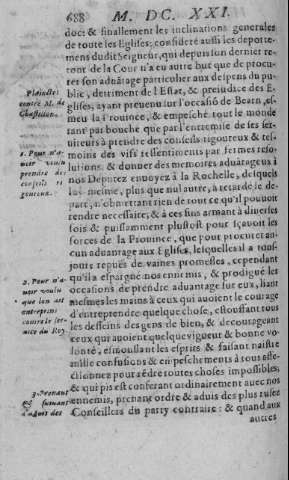 688 M. DC. XXI.
doct & finallement les inclinations generales
de toute les Eglises; consideré aussi les deporte-
mens dudit Seigneur, qui depuis son dernier re-
tour de la Cour n'a eu autre but que de procu-
rer son aduãtage particulier aux despens du pu-
blic, detriment de l'Estat, & preiudice des E-
glises, ayant preuenu sur l'occasiõ de Bearn, es-
meu la Prouince, & empesché tout le monde
tant par bouche que par l'entremise de ses ser-
uiteurs à prendre des conseils rigoureux & tes-
moins des vifs ressentimens par fermes reso-
lutions, & donner des memoires aduãtageux à
nos Deputez enuoyez à la Rochelle, desquels
lui-mesme, plus que nul autre, a retardé le de-
part, n'obmettant rien de tout ce qu'il pouuoit
rendre necessaire; & à ces fins armant à diuerses
fois & puissamment plustost pour sçauoir les
forces de la Prouince, que pour procurer au-
cun aduantage aux Eglises, lesquelles il a tous-
jours repuës de vaines promesses, cependant
qu'il a espargné nos ennemis, & prodigué les
occasions de prendre aduantage sur eux, liant
mesmes les mains à ceux qui auoient le courage
d'entreprendre quelque chose, estouffant tous
les desseins des gens de bien, & decourageant
ceux qui auoient quelque vigueur & bonne vo-
lonté, esmoussant les esprits & faisant naistre
mille confusions & empeschements à tous
pour rẽdre toutes choses impossibles;
& qui pis est conferant ordinairement auec nos
ennemis, prenant ordre & aduis des plus rusez
Conseillers du party contraire: & quand aux
autres
Plainctes
contre M. de
Chastillon.
1. Pour n'a-
uoir voulu
prendre des
conseils ri-
goureux.
2. Pour n'a-
uoir voulu
que l'on ait
entreprins
contre le ser-
uice du Roy.
3. Prenant
aduis des